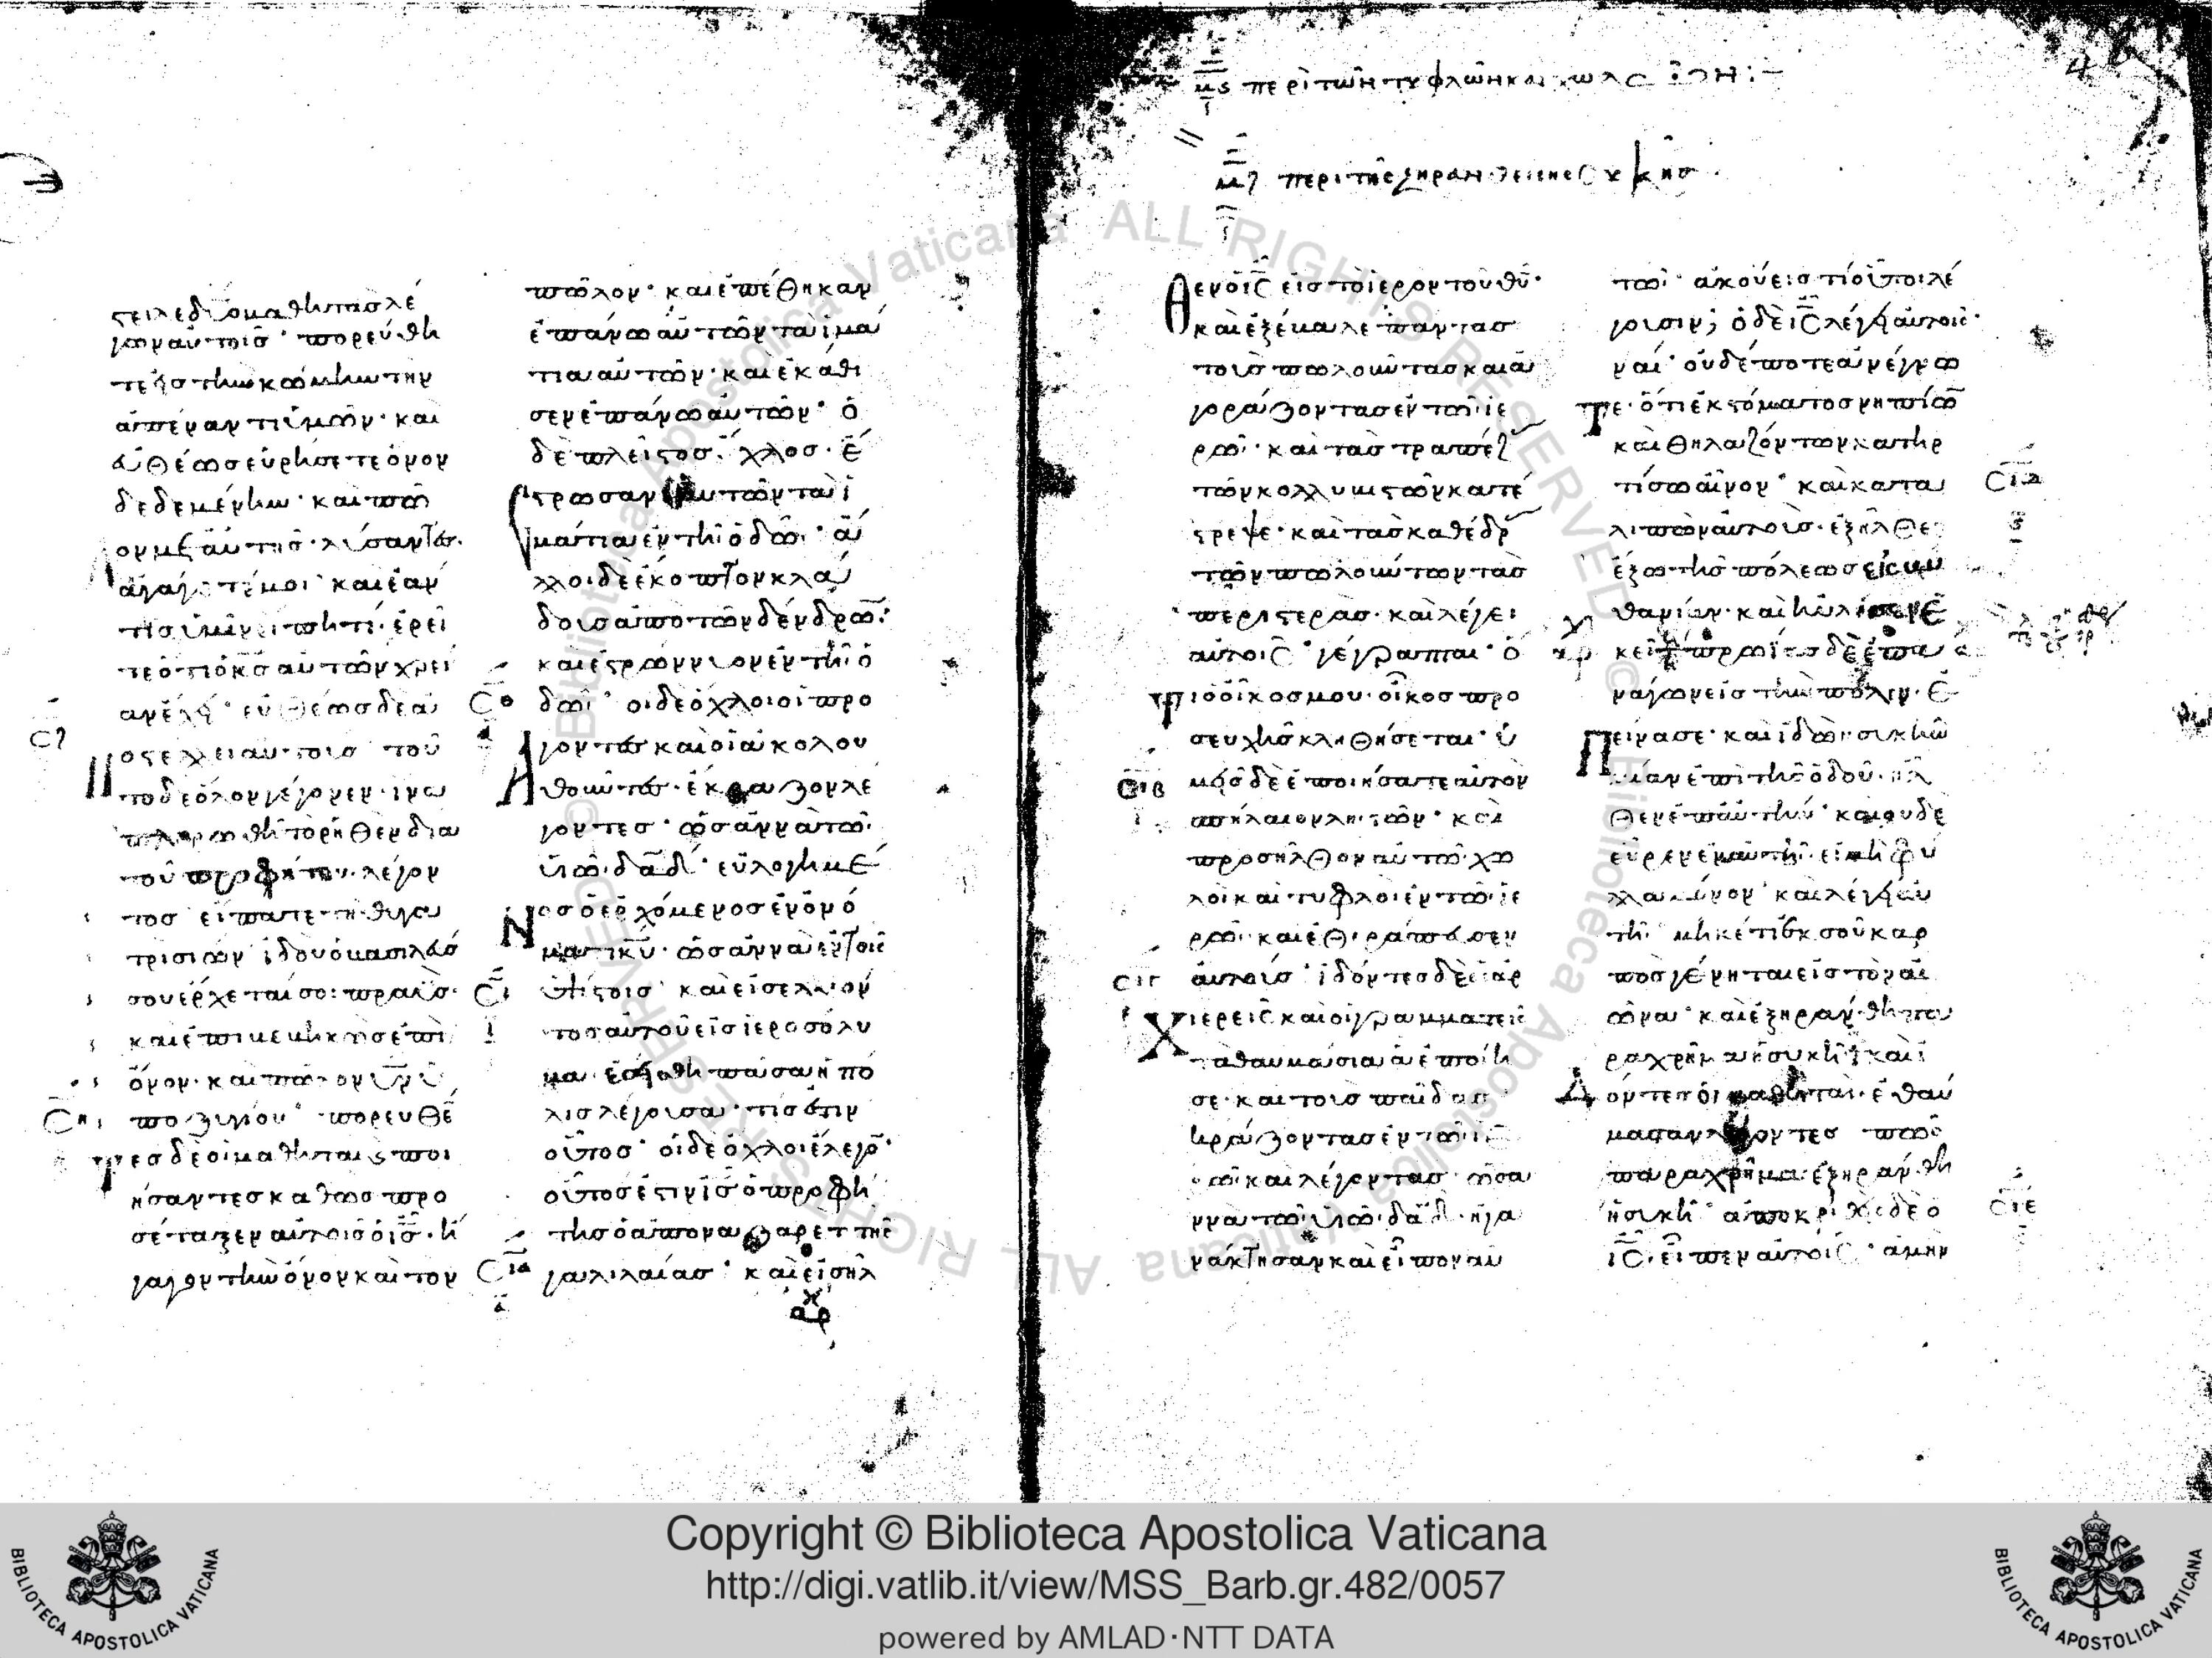 ςειλε δύο μαθητὰς λέ
γων αὐτοῖς· πορεύθη
τε εἰς τὴν κώμην τὴν
ἀπέναντι ὑμῶν· και
εὐθέως εὑρήσετε ὄνον
δεδεμένην· καὶ πῶλ
ον μετ αὐτῆς· λύσαντες
ἀγάγετέ μοι· καὶ ἐάν
τις ὑμῖν εἴπῃ τι· ἐρεῖ
τε ὅτι ὁ κ̅ς̅ αὐτῶν χρεί
αν ἔχει· εὐθέως δὲ ἀ
ποςέλλει αὐτους· τοῦ
το δὲ ὅλον γέγονεν· ἵνα
πληρωθῆ τὸ ῥηθὲν δια
τοῦ προφήτου· λέγον
τος εἴπατε τῇ θυγα
τρὶ σιών ἰδοὺ ὁ βασιλεύς
σου ἔρχεταί σοι πραΰς·
καὶ ἐπιβεβηκὼς ἐπὶ
ὄνον· καὶ πῶλον υἱὸν ὑ
ποζυγίου· πορευθέ
τες δὲ οἱ μαθηταὶ ϗ ποι
ήσαντες καθὼς προ
σέταξεν αὐτοῖς ὁ ι̅ς̅· ἤ
γαγον τὴν ὄνον καὶ τὸν
πῶλον· καὶ ἐπέθηκαν
ἐπάνω αὐτῶν τὰ ἱμά
τια αὐτῶν· καὶ ἐκάθι
σεν ἐπάνω αὐτῶν· ὁ
δὲ πλεῖςος ὄχλος· ἔ
ςρωσαν ἑαυτῶν τὰ ἱ
μάτια ἐν τῇ ὁδῶ· ἄ
λλοι δὲ ἔκοπτον κλά
δους ἀπὸ τῶν δένδρων·
καὶ ἐςρώννυον ἐν τῇ ὁ
δῶ· οἱ δὲ ὄχλοι οἱ προ
άγοντες καὶ οἱ ἀκολου
θοῦντες· ἔκραζον λέ
γοντες· ὡσαννὰ τῶ
υἱῶ δα̅δ̅· εὐλογημέ
νος ὁ ἐρχόμενος ἐν ὀνό
ματι κ̅υ̅· ὡσαννὰ ἐν τοῖς
ὑψίςοις· καὶ εἰσελθόν
τος αὐτοῦ εἰς ἱεροσόλυ
μα ἐσείσθη πᾶσα ἡ πό
λις λέγουσα· τίς ἐστιν
οὗτος· οἱ δὲ ὄχλοι ἔλεγον·
οὗτός ἐςιν ι̅ς̅ ὁ προφή
της ὁ ἀπὸ ναζαρετ τῆς
γαλιλαίας· καὶ εἰσῆλ
μϛ περὶ τῶν τυφλῶν καὶ χωλ
μζ περὶ τῆς ξηρανθείσης συκῆς
θεν ὁ ι̅ς̅ εἰς τὸ ἱερὸν τοῦ θ̅υ̅·
καὶ ἐξέβαλε πάντας
τοὺς πωλοῦντας καὶ ἀ
γοράζοντας ἐν τῶ ἱε
ρῶ· καὶ τὰς τραπέζ
τῶν κολλυβιςῶν κατέ
ςρεψε· καὶ τὰς καθέδρ
τῶν πωλούντων τὰς
περιςεράς· καὶ λέγει
αὐτοῖς· γέγραπται· ὅ
τι ὁ οἶκός μου· οἶκος προ
σευχῆς κληθήσεται· ὑ
μεῖς δὲ ἐποιήσατε αὐτὸν
σπήλαιον λῃςῶν· καὶ
προσῆλθον αὐτῶ χω
λοὶ καὶ τυφλοὶ ἐν τῶ ἱε
ρῶ· καὶ ἐθεράπευσεν
αὐτούς· ἰδόντες δὲ οἱ ἀρ
χιερεῖς καὶ οἱ γραμματεῖς
τὰ θαυμάσια ἃ ἐποίη
σε· καὶ τοὺς παῖδας
κράζοντας ἐν τῶ ἱε
ρῶ καὶ λέγοντας· ὡσα
ννὰ τῶ υἱῶ δα̅δ̅· ἠγα
νάκτησαν καὶ εἶπον αὐ
τῶ· ἀκούεις τί οὗτοι λέ
γουσιν; ὁ δὲ ι̅ς̅ λέγει αὐτοῖς·
ναί· οὐδέποτε ἀνέγνω
τε· ὅτι ἐκ ςόματος νηπίων
καὶ θηλαζόντων κατηρ
τίσω αἶνον· καὶ κατα
λιπὼν αὐτοὺς· ἐξῆλθεν
ἔξω τῆς πόλεως εἰς βη
θανίαν· καὶ ηὐλίσθη ἐ
κεῖ· πρωίας δὲ ἐπα
νάγων εἰς τὴν πόλιν· ἐ
πείνασε· καὶ ἰδὼν συκῆν
μίαν ἐπὶ τῆς ὁδοῦ· ἦλ
θεν ἐπ' αὐτήν· καὶ οὐδὲν
εὗρεν ἐν αὐτῇ· εἰ μὴ φύ
λλα μόνον· καὶ λέγει αὐ
τῇ· μηκέτι ἐκ σοῦ καρ
πὸς γένηται εἰς τὸν αἰ
ῶνα· καὶ ἐξηράνθη πα
ραχρῆμα ἡ συκῆ· καὶ ἰ
δόντες οἱ μαθηταὶ· ἐθαύ
μασαν λέγοντες πῶς
παραχρῆμα ἐξηράνθη
ἡ συκῆ· ἀποκριθεὶς δὲ ὁ
ι̅ς̅· εἶπεν αὐτοῖς· ἀμὴν
Copyright © Biblioteca Apostolica Vaticana
http://digi.vatlib.it/view/MSS_Barb.gr.482/0057
powered by AMLAD·NTT DATA